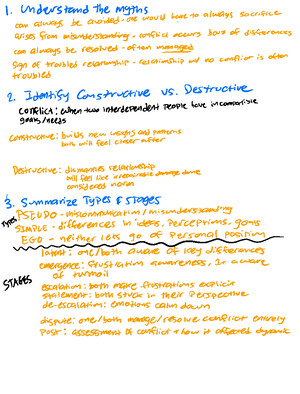 1. Understand the Myths
can always be avoided - one would have to always sacrifice
arises from misunderstanding - conflict occurs bc of differences
can always be resolved - often managed
sign of troubled relationship - relationship w/ no conflict is often
troubled
2. Identify Constructive vs. Destructive
Conflict: when two interdependent people have incompatible
goals/needs
Constructive: builds new insights and patterns
both will feel closer after
Destructive: dismantles relationship
will feel like irreparable damage done
considered norm
3. Summarize Types & Stages
Types
PSEUDO - miscommunication/misunderstanding
SIMPLE - differences in ideas, perceptions, goals
EGO - neither lets go of personal position
STAGES
latent: one/both aware of key differences
emergence: frustration awareness, 1+ aware
of turmoil
escalation: both make frustrations explicit
stalemate: both stuck in their perspective
de-escalation: emotions calm down
dispute: one/both manage/resolve conflict entirely
Post: assessment of conflict + how it affected dynamic